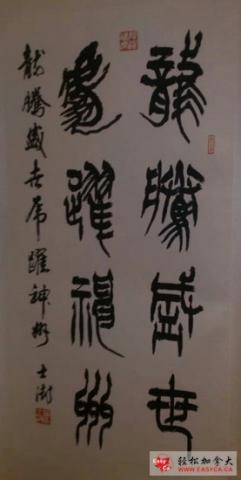 龍騰盛世
虎躍神州
龍騰盛世虎躍神州 士澍
轻松加拿大
WWW.EASYCA.CA